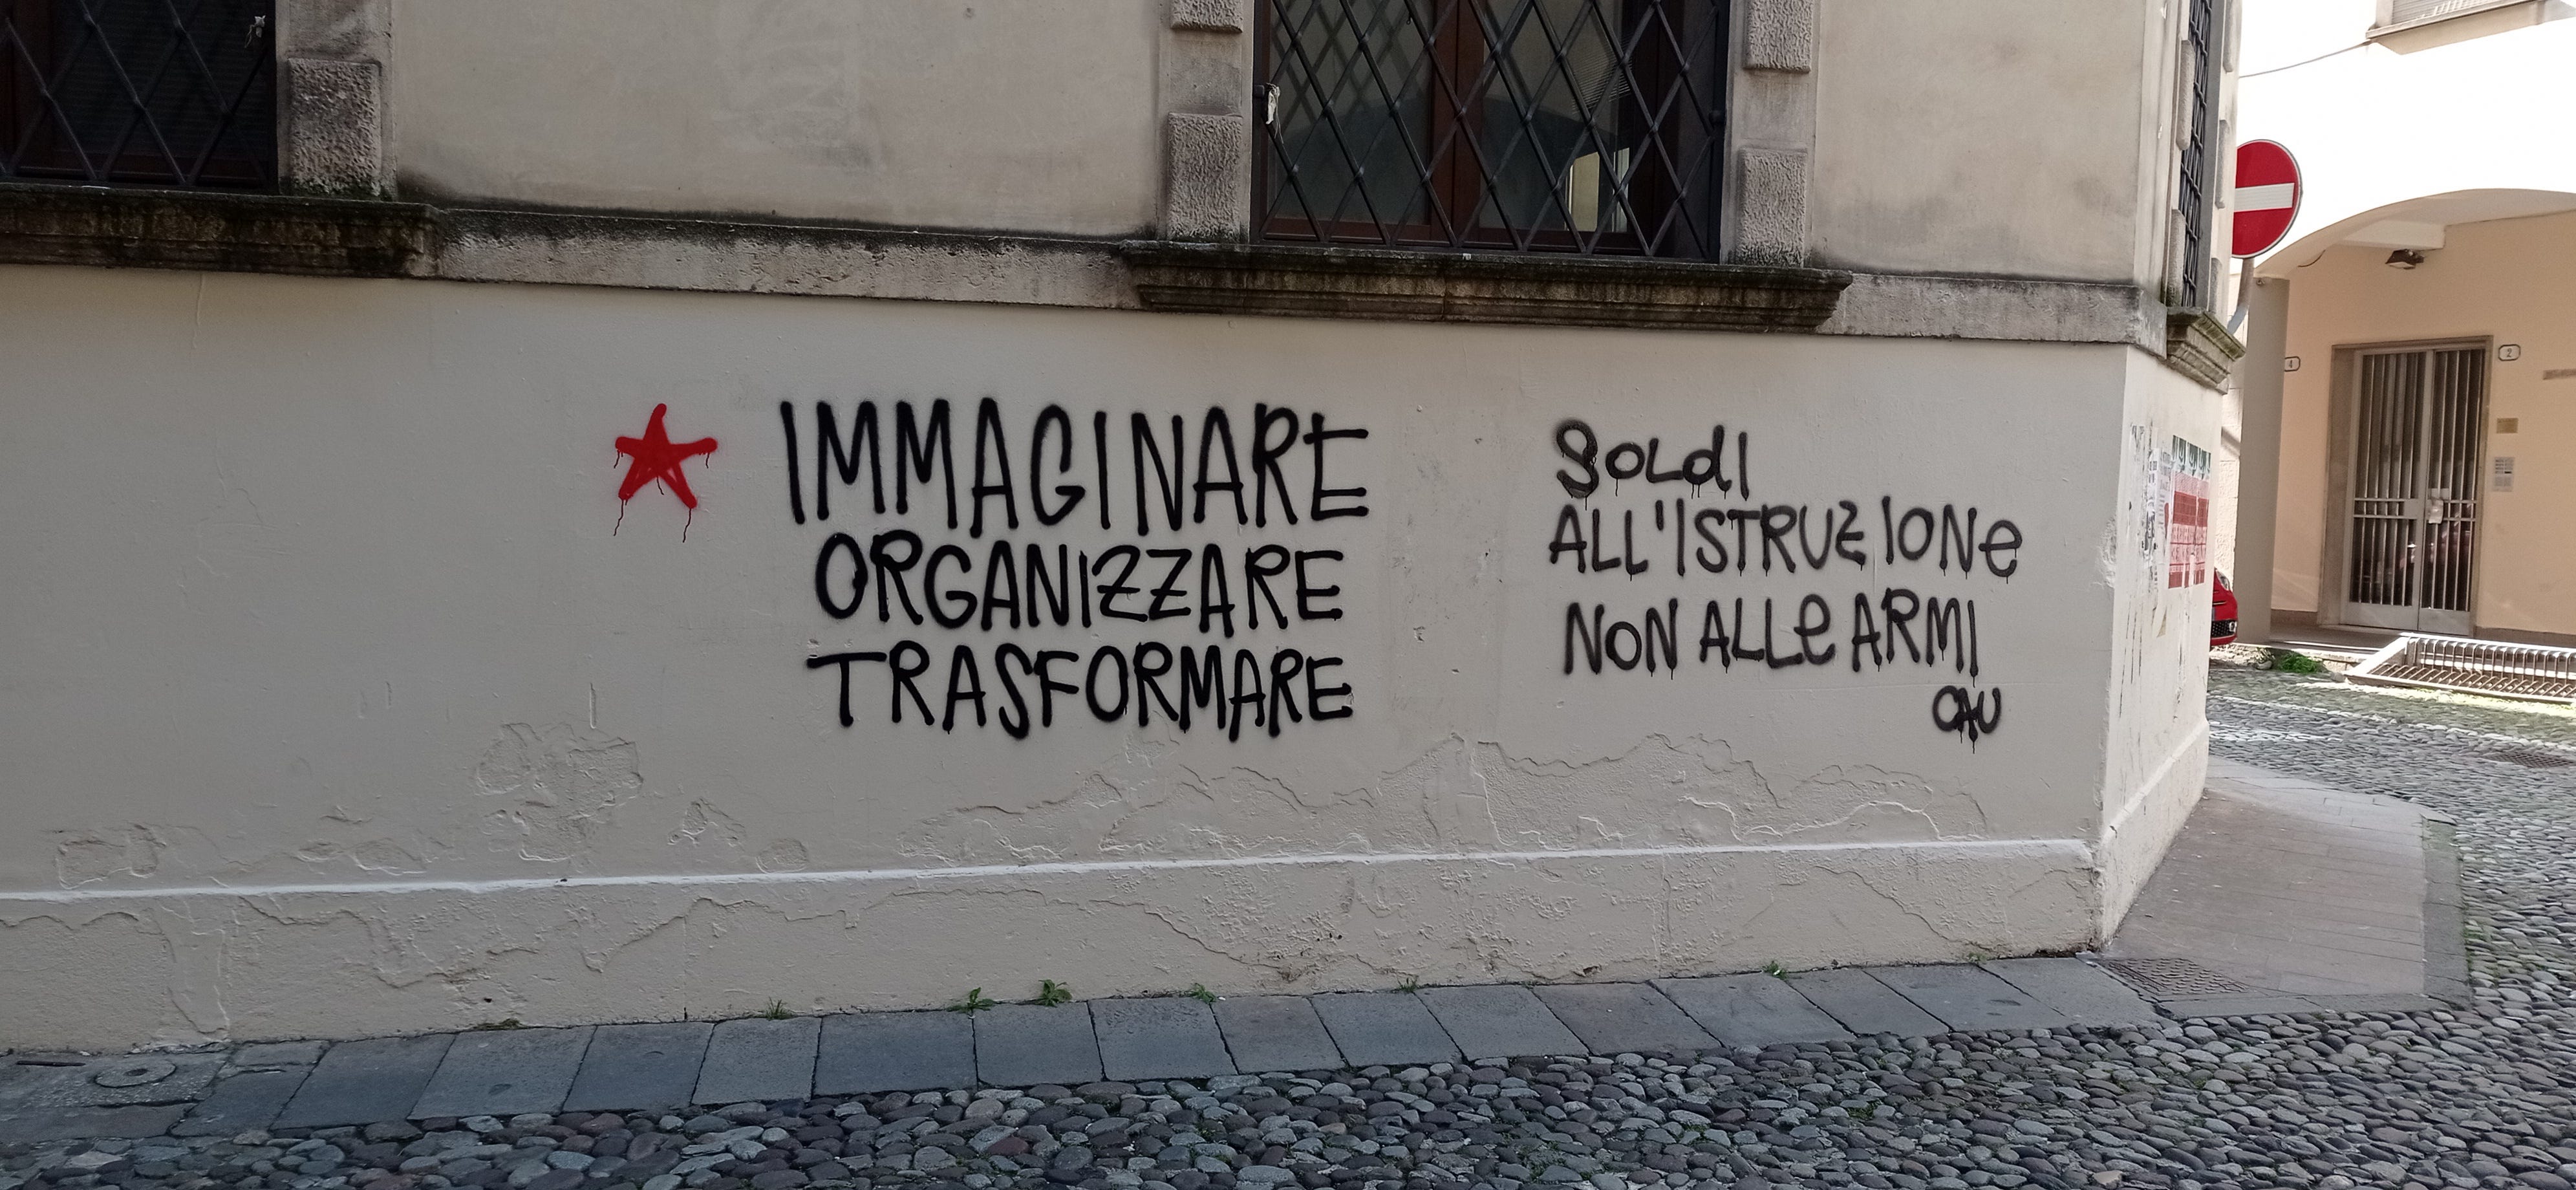 IMMAGINARE
ORGANIZZARE
TRASFORMARE
SOLdI
ALL'ISTRUZIONe
NON ALLe ARMI
CAU
2